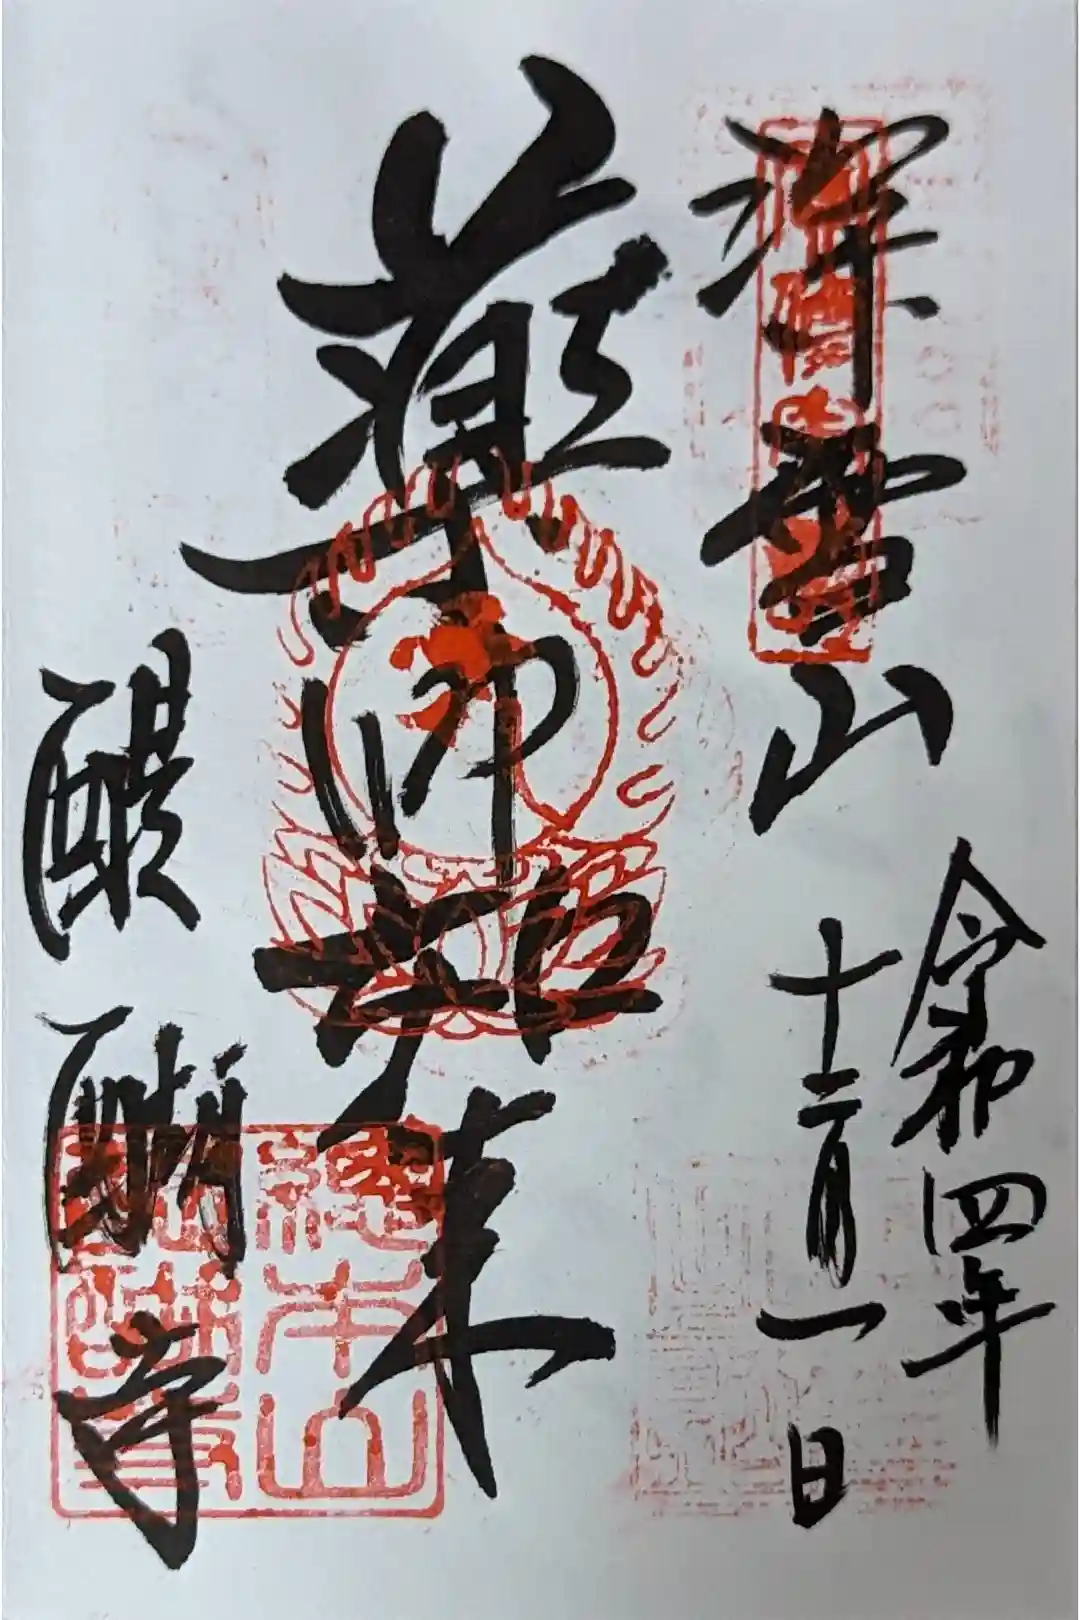 令和四年
十二月一日
深雪山
薬師如来
醍醐寺
總本山
醍醐寺